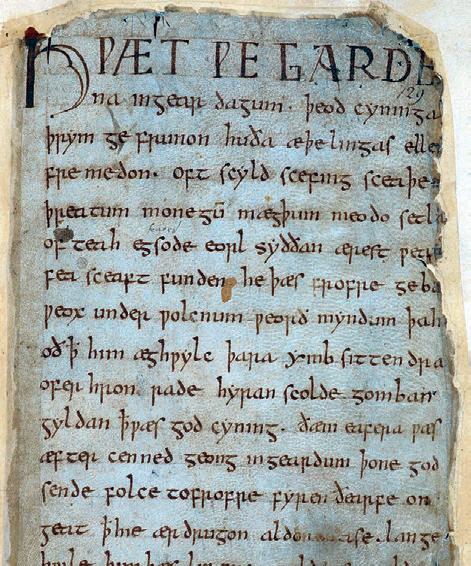 HǷÆT ǷE GARDE
na ingear dagum. þeod cyninga
þrym ge frunon huða æþelingas elle
fre medon. oft scyld scefing sceaþe
þreatum monegū mægþum meodo setla
of teah egsode eorl syððan ærest ƿear
fea sceaft funden he þæs frofre geba
ƿeox under ƿolcnum ƿeorð myndum þah
oð ꝥ him æghƿylc þara ymb sittendra
ofer hron rade hyran scolde gomban
gyldan ꝥ ƿæs god cyning. ðæm eafera ƿæs
æfter cenned geong in geardum þone god
sende folce tofrofre fyren ðearfe on
geat ꝥ hie ær drugon aldor ase. lange
hƿile him þæs